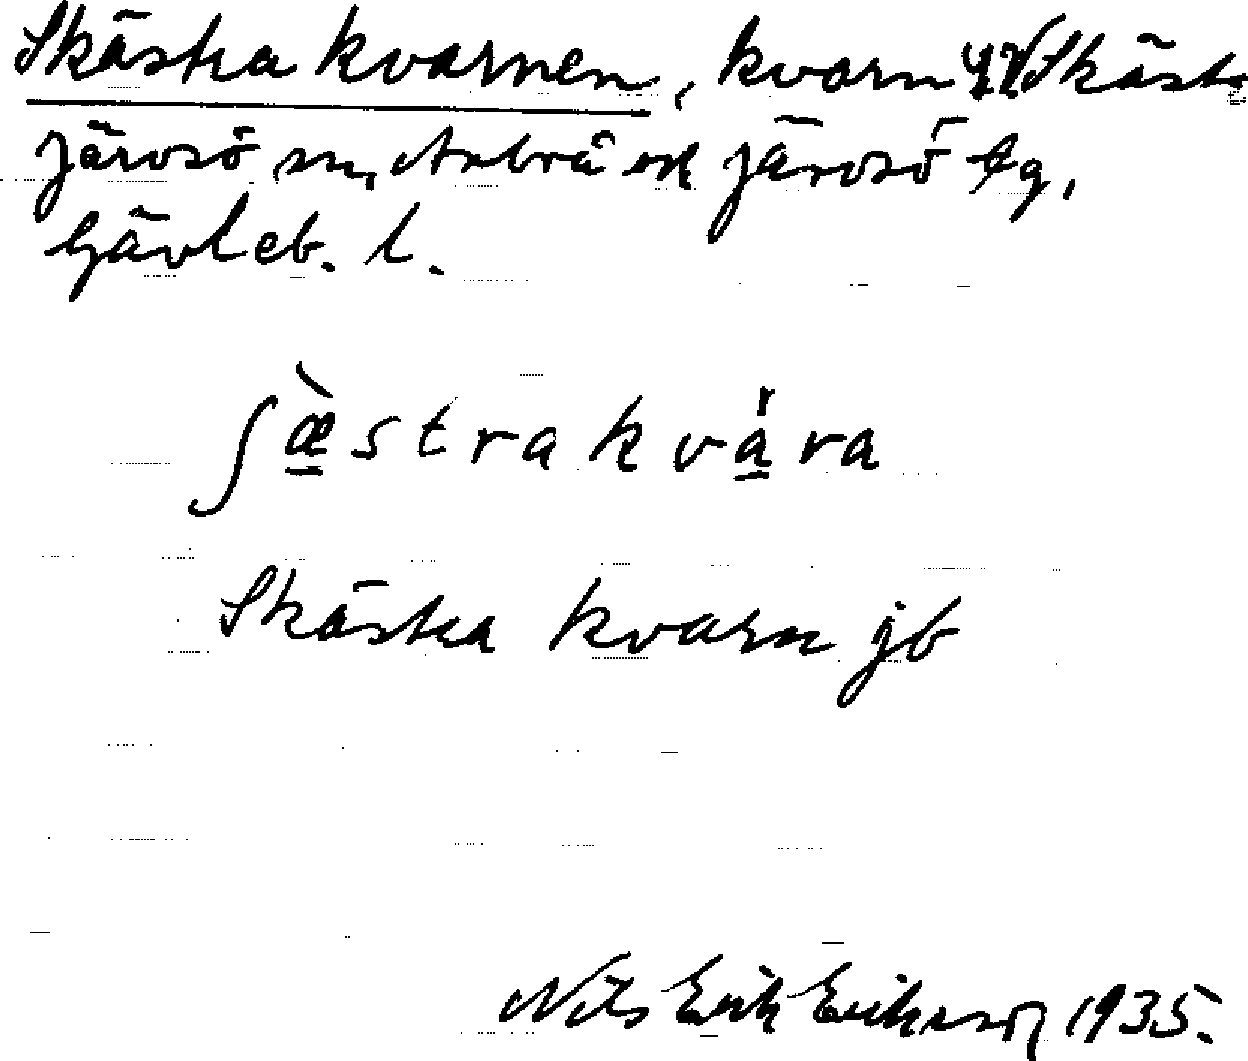 Skästra kvarnen, kvarn
Järvsö sn, Arbrå och Järvsö tg,
Gävleb. l.
ʃæ̠̀strakva̠ra
Skästra kvarn jb
Nils Erik Erikson 1935.